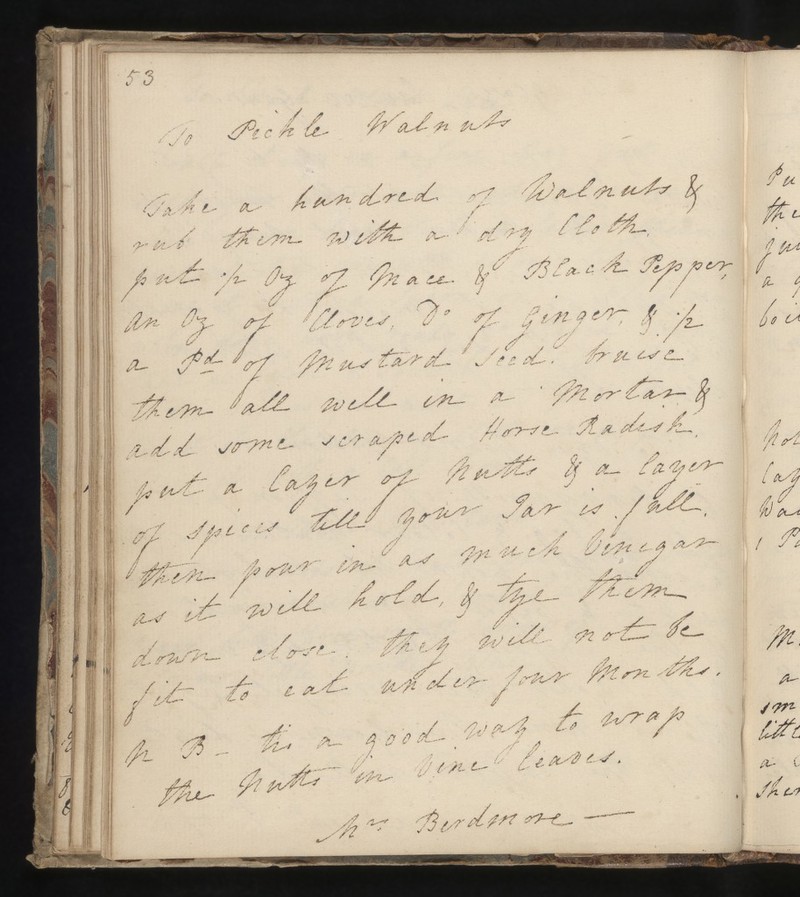 53
To Pickle Walnuts
Take a hundred of Walnuts &
rub them with a dry Cloth.
put 1/2 Oz of Mace & Black Pepper,
An Oz of Cloves, Do of Ginger, & 1/2
a Pd of Mustard Seed. bruise
them all well in a Mortar &
add some scraped Horse Radish.
put a layer of Nutts & a layer
of spices till your Jar is full.
then pour in as much Vinegar
as it will hold, & tye them
down close. they will not be
fit to eat under four Months.
N B - tis a good way to wrap
the Nutts in Vine leaves.
Mrs Berdmore —
Pu
the
a
boi
lay
M.
a
sm
little
a